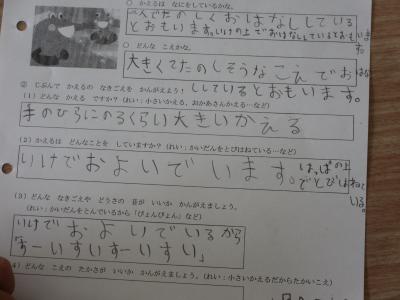 ○ かえるは なにをしているかな。
んでたのしくおはなししている
とおもいます。いけの上でおはなししているとおもいます。
○ どんな こえかな。
大きくてたのしそうなこえでおはな
ししているとおもいます。
② じぶんで かえるの なきごえを かんがえよう！
(1) どんな かえる ですか？(れい：小さいかえる、おかあさんかえる…など)
手のひらにのるくらい大きいかえる
(2) かえるは どんなことを していますか？(れい：かいだんをとびはねている…など)
いけでおよいでいます。はっぱの上でとびはねている。
(3) どんな なきごえや どうさの 音が いいか かんがえましょう。
(れい：かいだんをとんでいるから「ぴょんぴょん」など)
いけでおよいでいるから
「すーいすいすーいすい」
4) どんな こえの たかさが いいか かんがえましょう。(れい：小さいかえるだからたかいこえ)